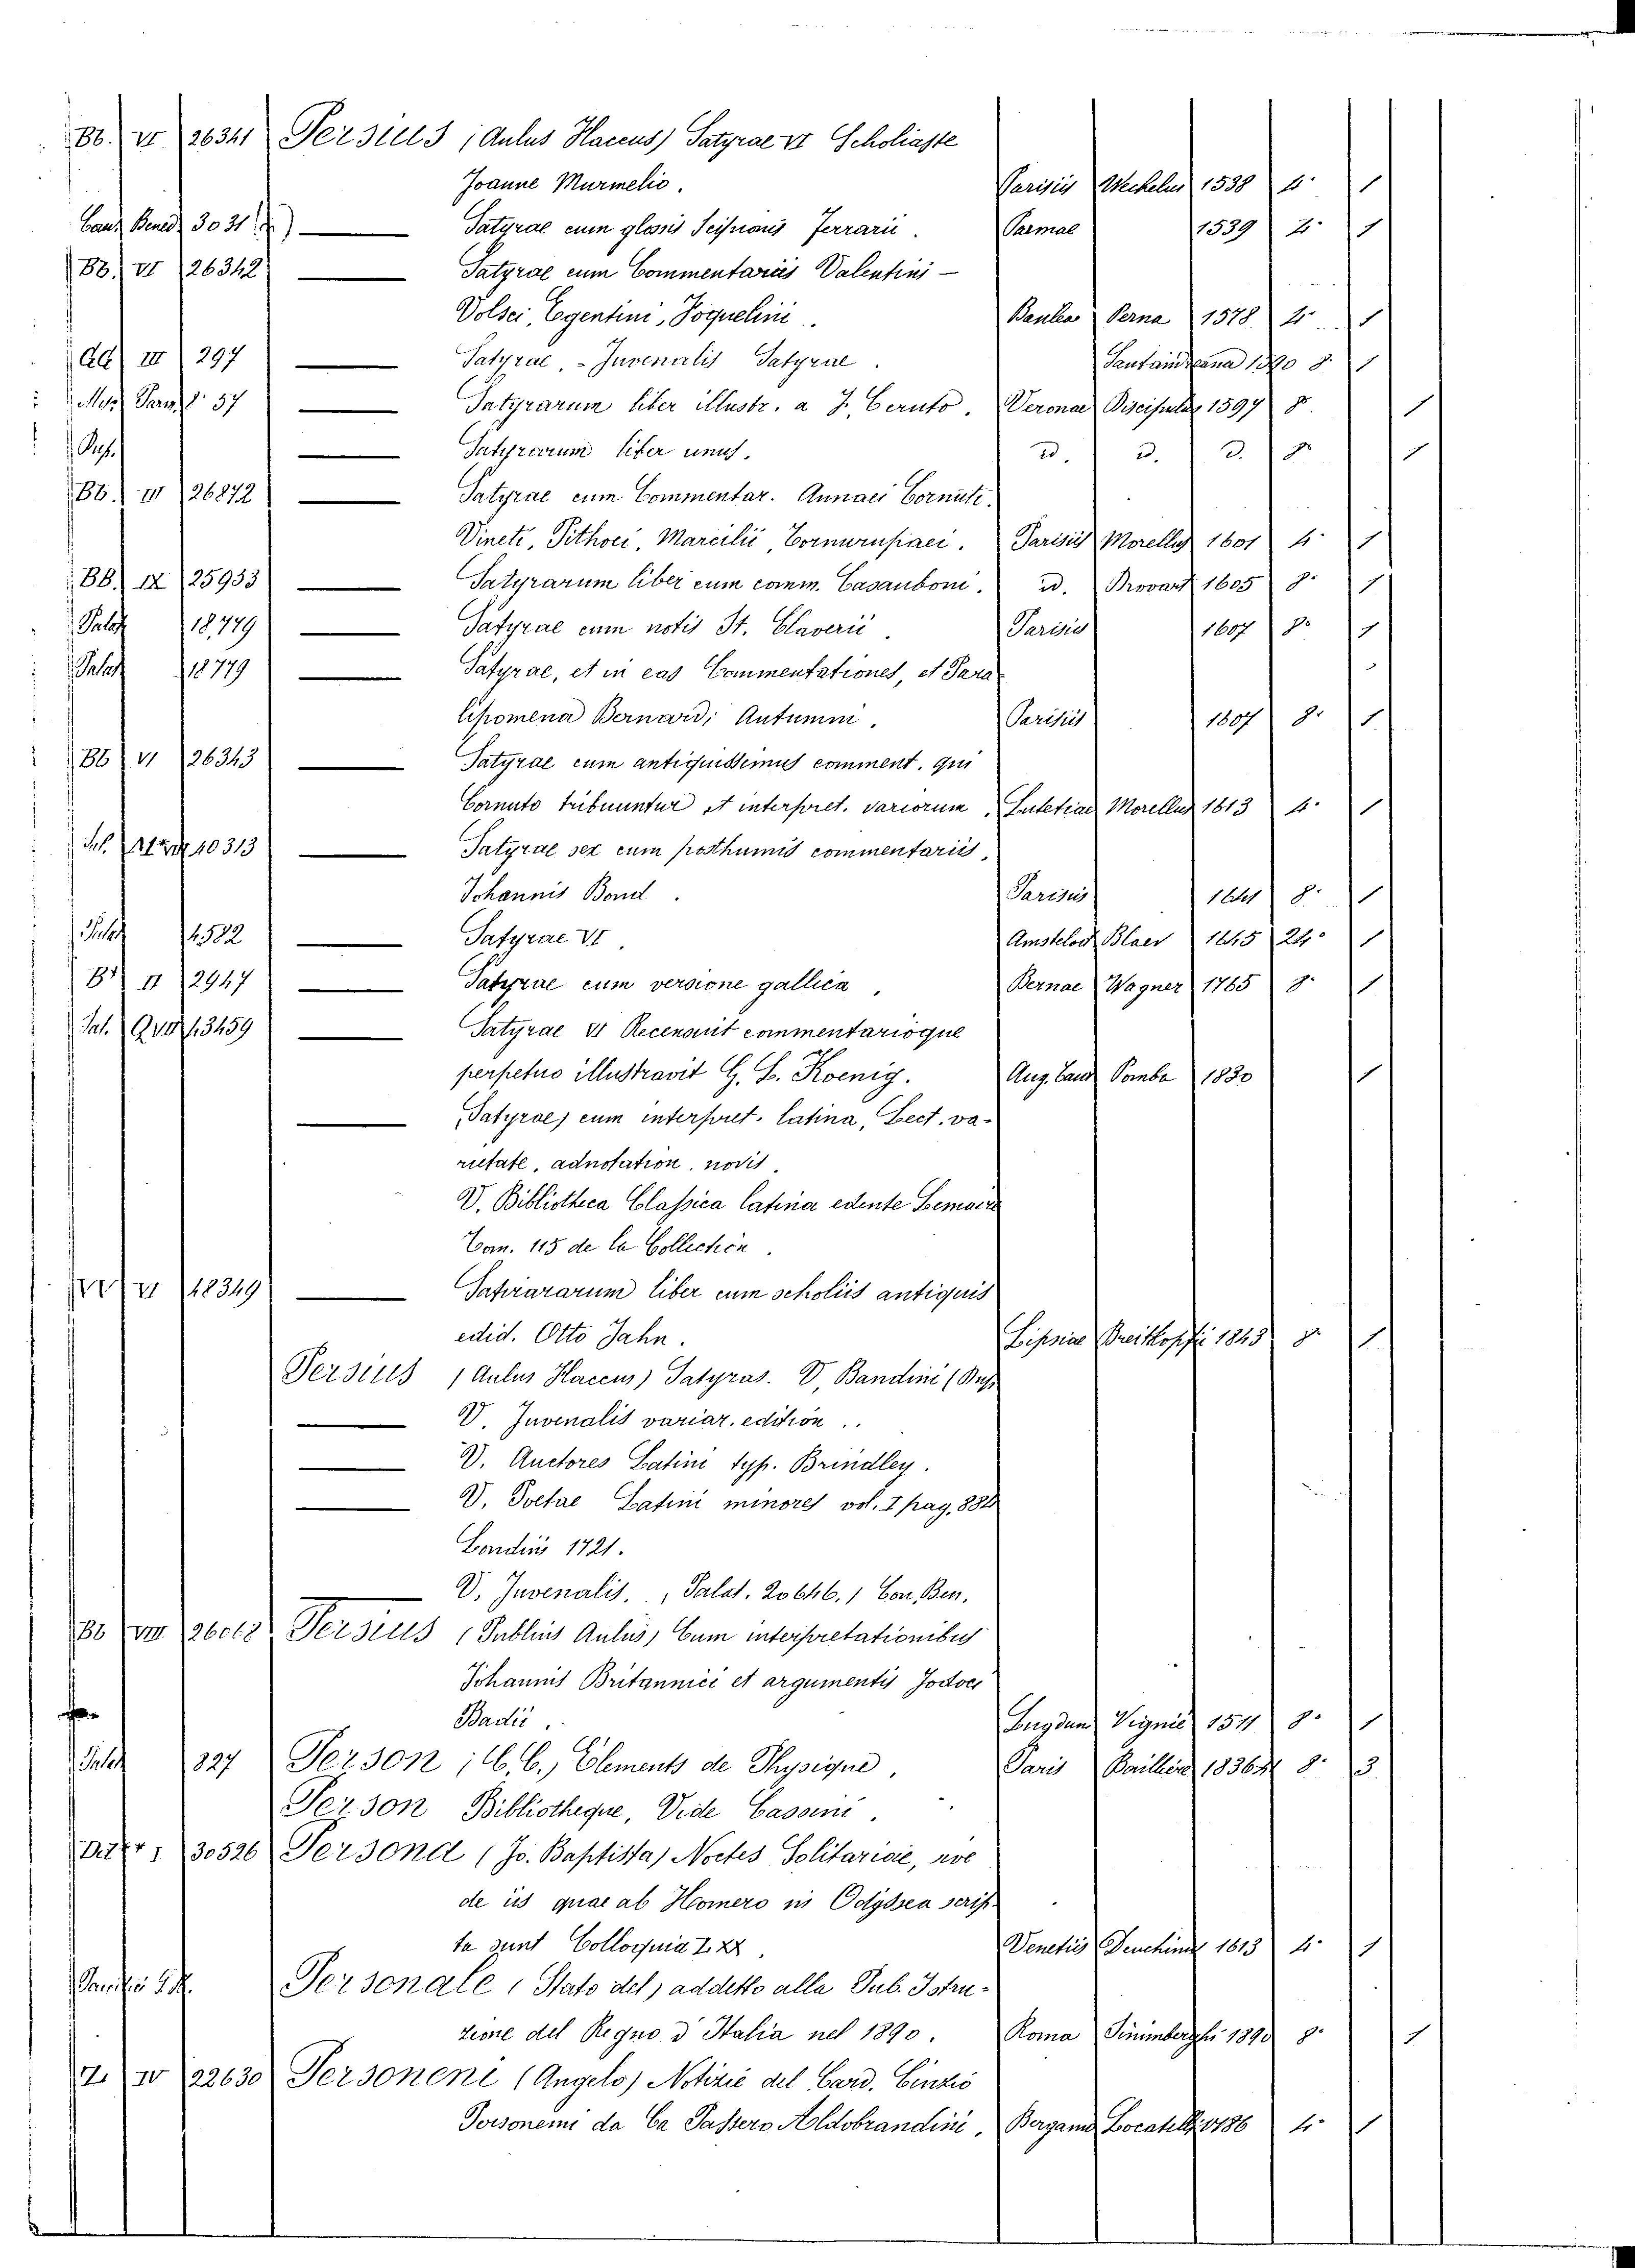 BB. VI 26341 Persius (Aulus Flaccus) Satyrae VI Scholiaste
Joanne Murmelio. Parisiis Wechelus 1538 4° 1
Canz Bened 3031 — Satyrae cum glossis Scipionis Ferrarii. Parmae 1539 1
BB. VI 26342 — Satyrae cum Commentariis Valentini –
Volsci, Egentini, Foquelini. Perna 1578 4° 1
III 297 — Satyrae, - Juvenalis Satyrae. 8. 1
57 — Satyrarum liber illustr. a J. Ceruto. Veronae Discipulus 1597 8° 1
— Satyrarum liber unus. id. id. id. 8° 1
BB. 26872 — Satyrae cum Commentar. Annaei Cornuti.
Vineti, Pithoei, Marcilii, Parisiis Morellus 1601 4° 1
BB. 25953 — Satyrarum liber cum comm. Casauboni. id. 1605 8° 1
Palat 18,779 — Satyrae cum notis St. Claverii. Parisiis 1607 8° 1
Palat 18779 — Satyrae, et in eas Commentationes, et Para
lipomena Bernardi Autumni. Parisiis 1607 8° 1
BB VI 26343 — Satyrae cum antiquissimus comment. qui
Cornuto tribuuntur et interpret. variorum. Lutetiae Morellus 1613 4° 1
10313 — Satyrae sex cum posthumis commentariis,
Johannis Bond. Parisiis 8° 1
4582 — Satyrae VI. Amstelod Blaev 1645 24° 1
2947 — Satyrae cum versione gallica. Bernae Wagner 1765 8° 1
13459 — Satyrae VI Recensuit commentarioque
perpetuo illustravit G. L. Koenig. Aug. Taur Pomba 1830 1
— Satyrae) cum interpret. latina, Lect. va-
rietate, adnotation. novis.
V. Bibliotheca Classica latina edente Lemaire
Tom. 115 de la Collection.
VI 48349 — Satirararum liber cum scholiis antiquis
edid. Otto Jahn. Lipsiae Breitkopfii 1843 8° 1
Persius (Aulus Flaccus) Satyras. V. Bandini (
— V. Juvenalis variar. edition..
— V. Auctores Latini typ. Brindley.
— V. Poetae Latini minores vol. I pag. 882
Londini 1721.
— V. Juvenalis. , Palat. 20646. / Con. Ben.
VIII Persius (Publius Aulus) Cum interpretationibus
Johannis Britannici et argumentis Jodoci
Badii. Lugduni 1511 8° 1
Palat 827 Person (C. C.) Elements de Physique. Paris Baillière 8° 3
Person Bibliotheque, Vide Cassini.
30526 Persona (Jo. Baptista) Noctes Solitariae, sive
de iis quae ab Homero in Odyssea scrip
ta sunt Colloquia LXX. Venetiis Deuchinus 1613 4° 1
Personale (Stato del) addetto alla Pub. Istru-
zione del Regno d'Italia nel 1890. Roma Sinimberghi 1890 8° 1
IV 22630 Personeni (Angelo) Notizie del Card. Cinzio
Personeni da Ca Passero Aldobrandini. Bergamo Locatelli 1786 4° 1